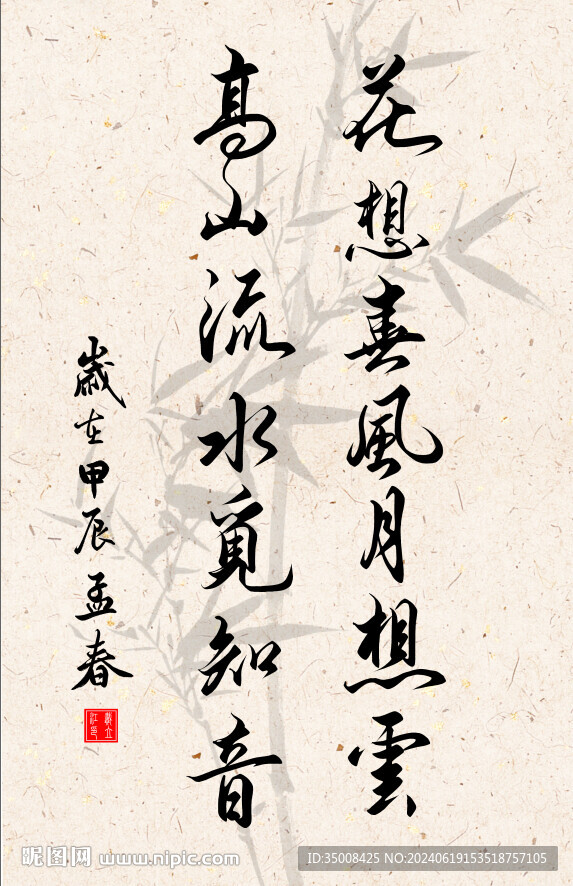 花想春風月想雲
高山流水覓知音
歲在甲辰孟春
昵图网 www.nipic.com
ID:35008425 NO:20240619153518757105